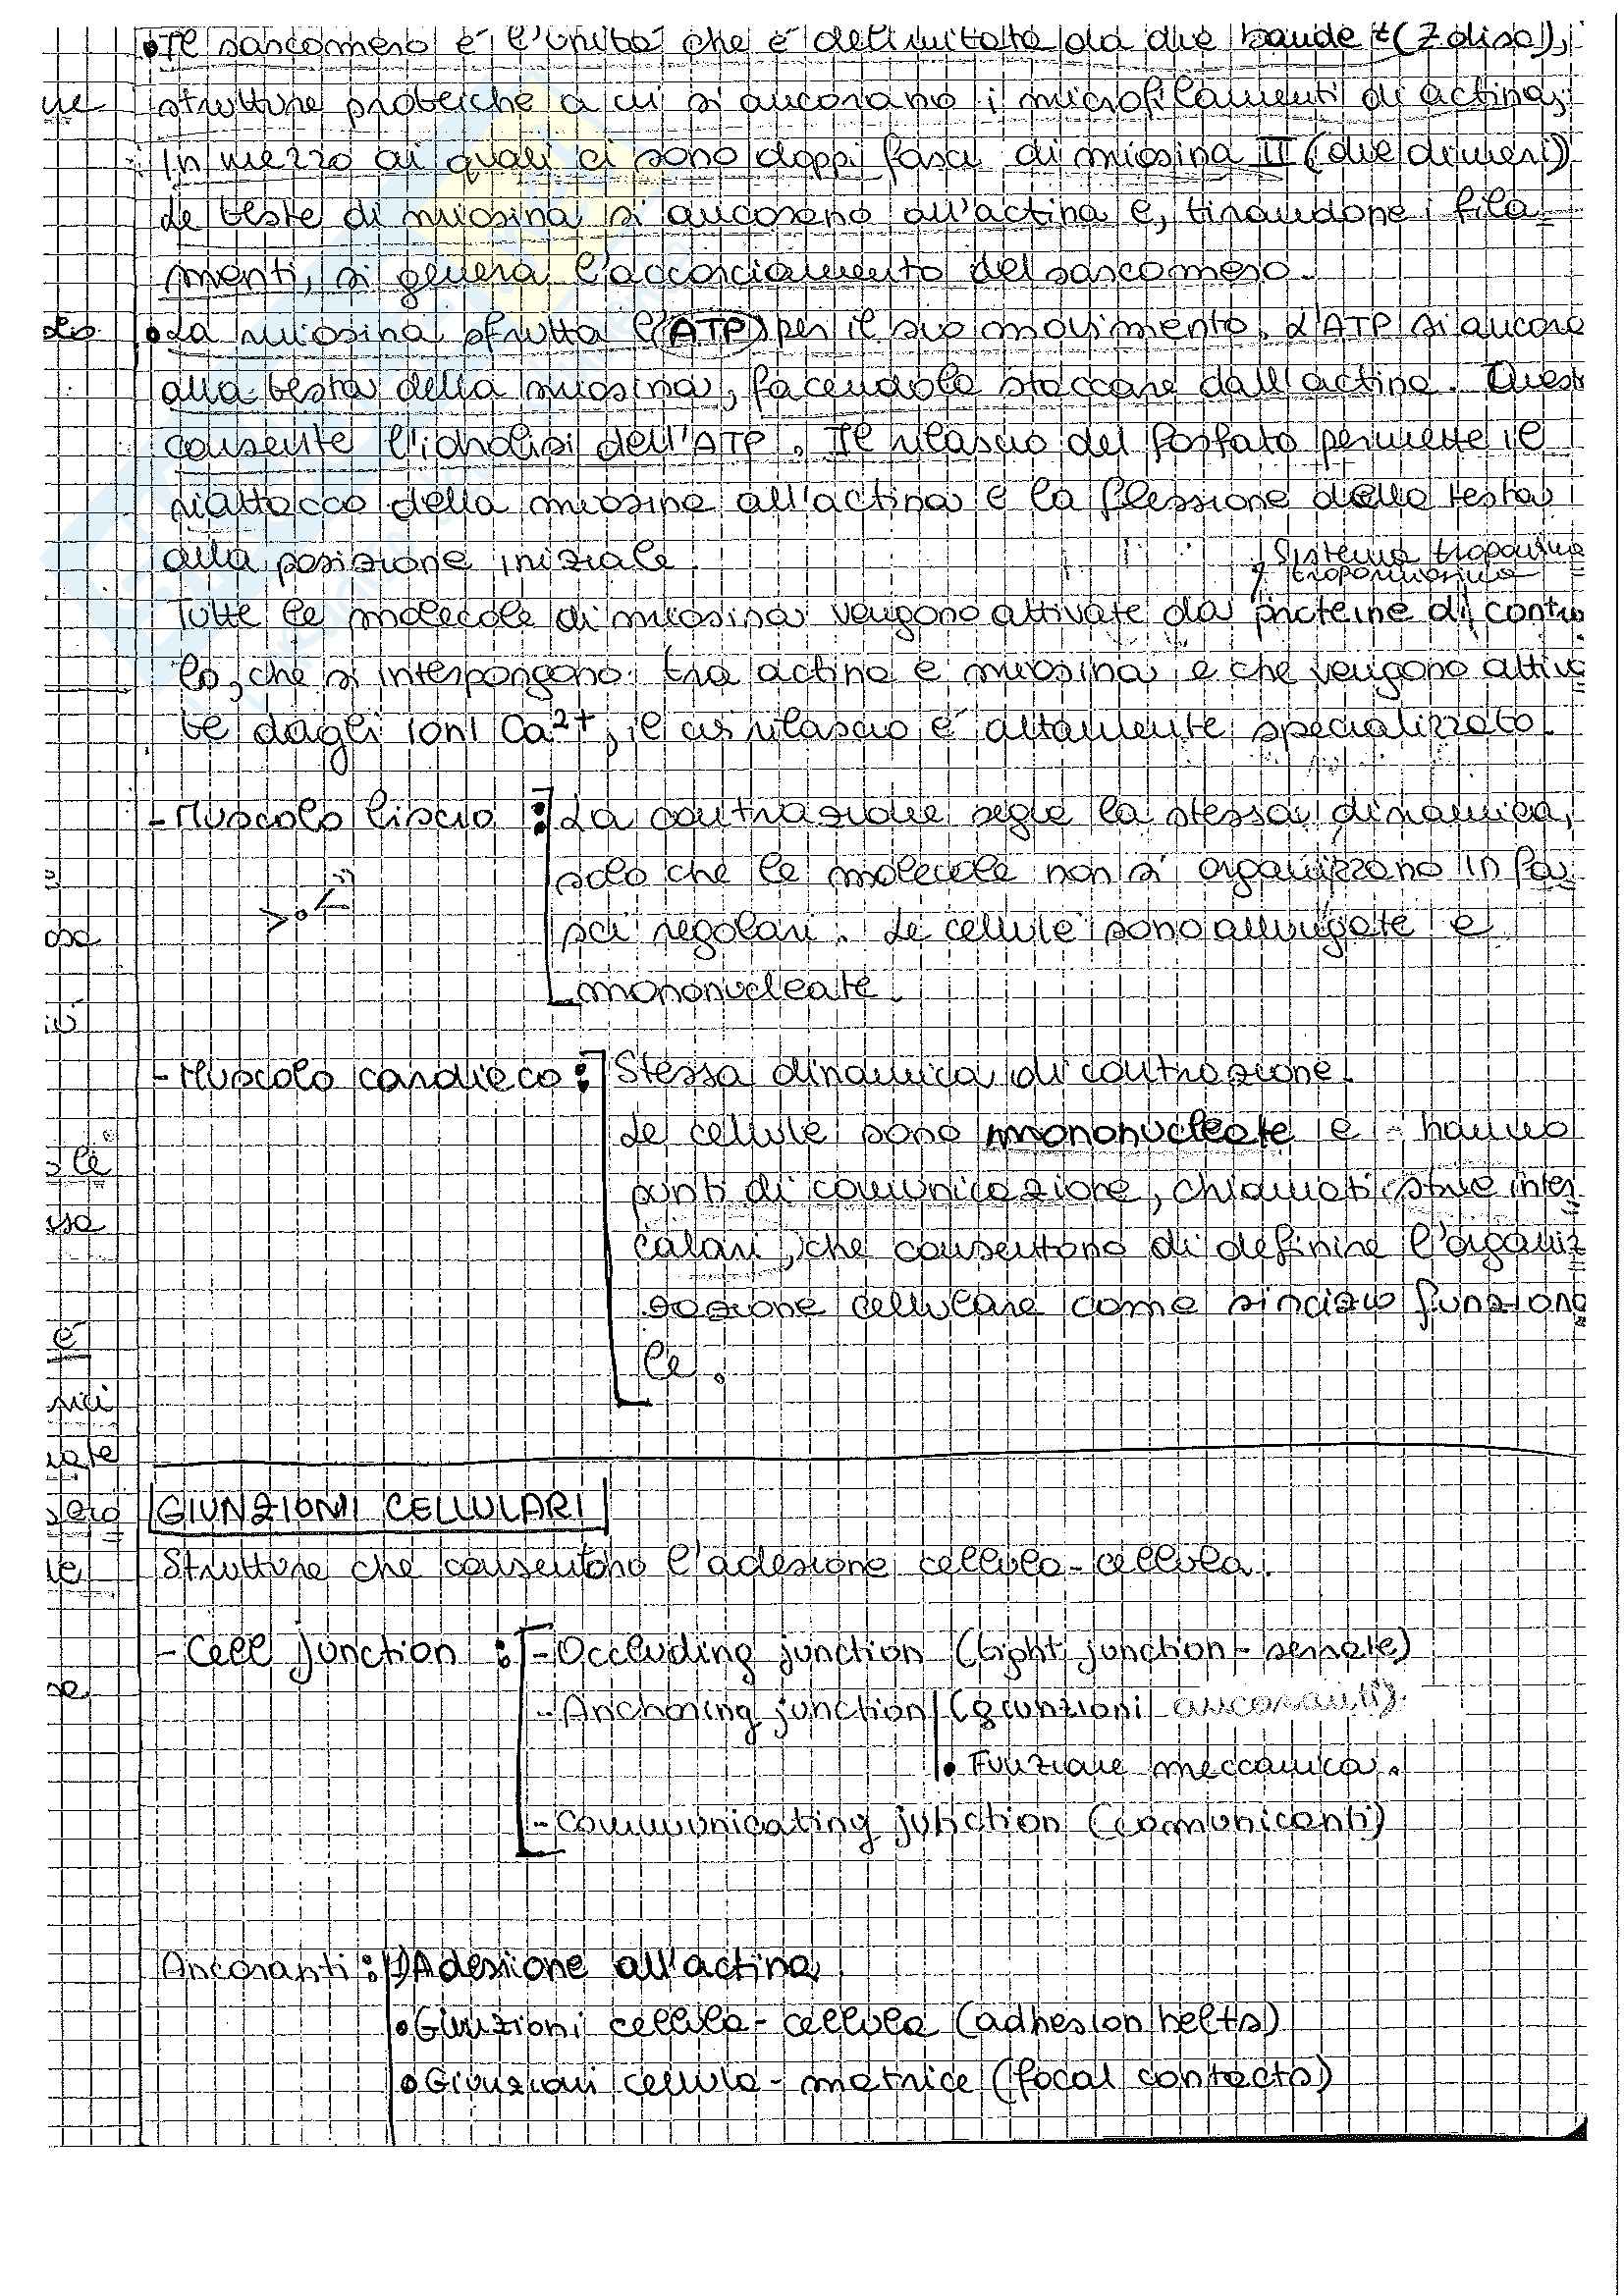 • Il sarcomero è l'unità che è delimitata da due bande z (Z disc),
strutture proteiche a cui si ancorano i microfilamenti di actina,
in mezzo ai quali ci sono doppi fasci di miosina II (due dimeri)
Le teste di miosina si ancorano all'actina e, tirandone i fila-
menti, si genera l'accorciamento del sarcomero.
• La miosina sfrutta l'ATP per il suo movimento. L'ATP si ancora
alla testa della miosina, facendola staccare dall'actina. Quest
consente l'idrolisi dell'ATP. Il rilascio del fosfato permette il
riattacco della miosina all'actina e la flessione della testa
alla posizione iniziale.
Sistema troponina
tropomiosina
Tutte le molecole di miosina vengono attivate da proteine di contro
lo, che si interpongono tra actina e miosina e che vengono attiva
te dagli ioni Ca²⁺, il cui rilascio è altamente specializzato.
- Muscolo liscio : La contrazione segue la stessa dinamica,
solo che le molecole non si organizzano in fa-
sci regolari. Le cellule sono allungate e
mononucleate.
- Muscolo cardiaco : Stessa dinamica di contrazione.
Le cellule sono mononucleate e hanno
punti di comunicazione, chiamati strie inter-
calari, che consentono di definire l'organiz
zazione cellulare come sincizio funziona
le.
GIUNZIONI CELLULARI
Strutture che consentono l'adesione cellula-cellula.
- Cell junction : - Occluding junction (tight junction - serrate)
- Anchoring junction (giunzioni ancoranti).
• Funzione meccanica.
- Communicating junction (comunicanti)
Ancoranti : 1) Adesione all'actina
• Giunzioni cellula-cellula (adhesion belts)
• Giunzioni cellula-matrice (focal contacts)